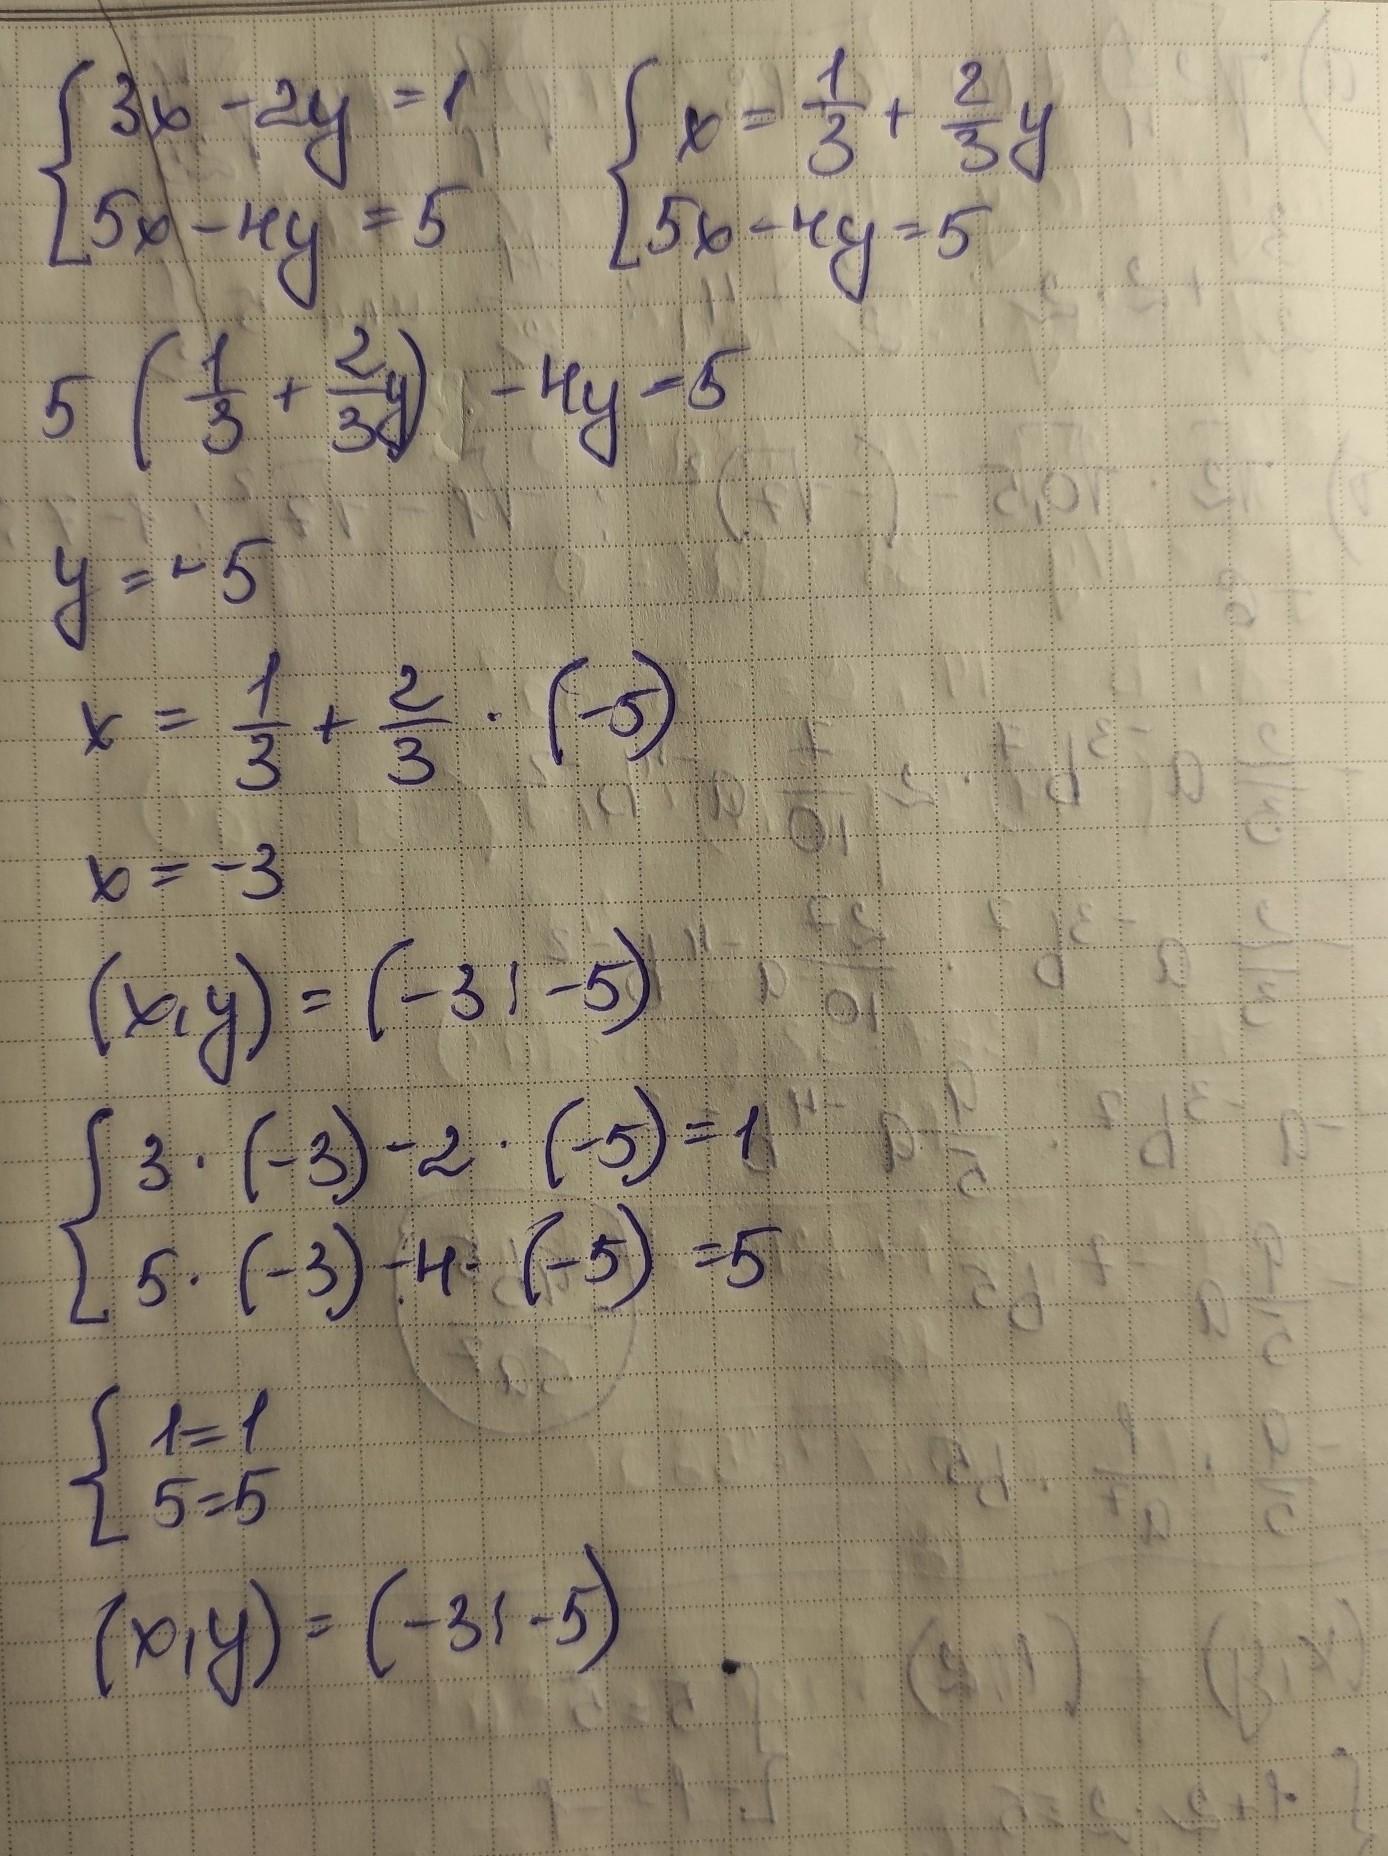 { 3x - 2y = 1 { x = 1/3 + 2/3 y
{ 5x - 4y = 5 { 5x - 4y = 5
5 (1/3 + 2/3 y) - 4y = 5
y = -5
x = 1/3 + 2/3 · (-5)
x = -3
(x, y) = (-3; -5)
{ 3 · (-3) - 2 · (-5) = 1
{ 5 · (-3) - 4 · (-5) = 5
{ 1 = 1
{ 5 = 5
(x, y) = (-3; -5)